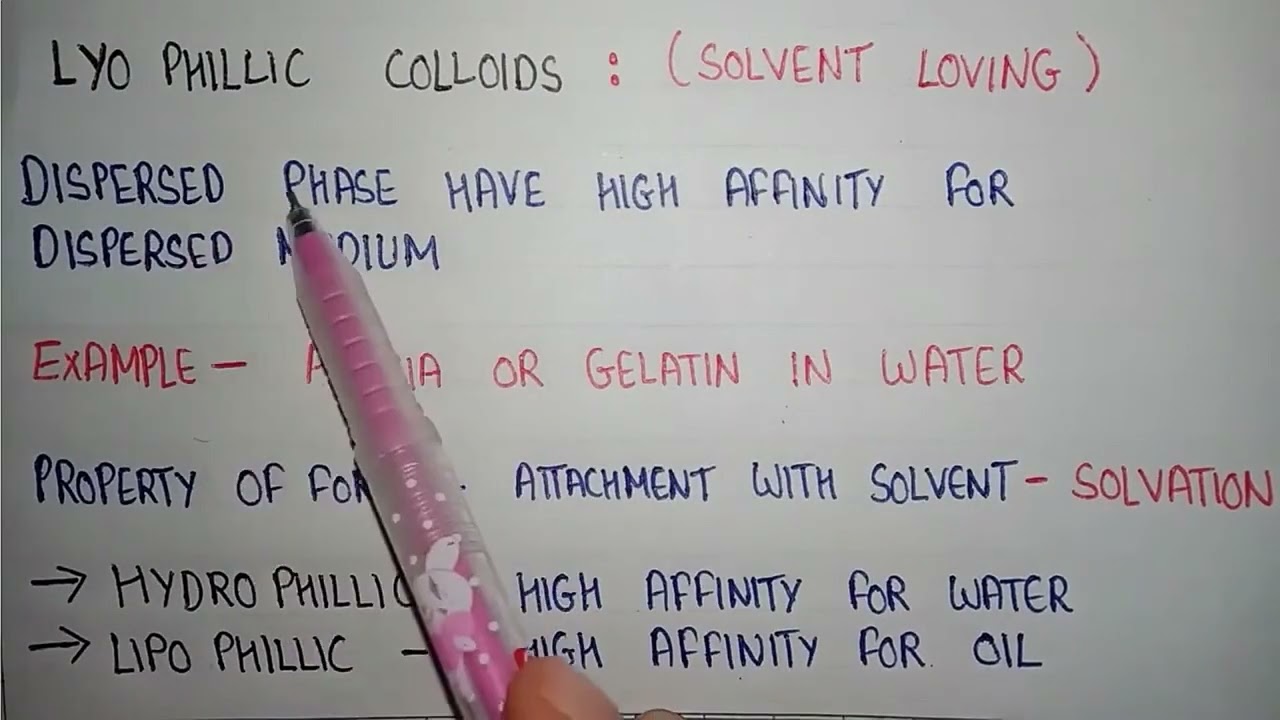 LYO PHILLIC COLLOIDS : (SOLVENT LOVING)
DISPERSED PHASE HAVE HIGH AFFINITY FOR
DISPERSED MEDIUM
EXAMPLE - OR GELATIN IN WATER
PROPERTY OF ATTACHMENT WITH SOLVENT - SOLVATION
→ HYDRO PHILLIC HIGH AFFINITY FOR WATER
→ LIPO PHILLIC - HIGH AFFINITY FOR OIL